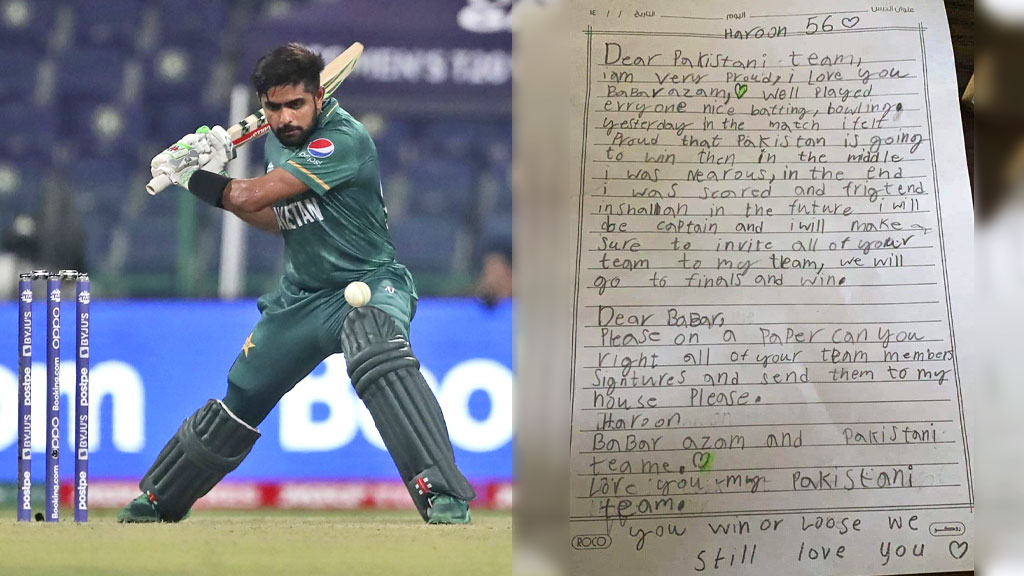 MEN'S T20
pepsi
KETAN
BYJU'S
postpe
BYJU'S
postpe
oppo
Booking.com
oppo
Booking.com
BYJU'S
postpe
BYJU'S
postpe
Boo
عنوان الدرس
اليوم
التاريخ
/ / ١٤
Haroon 56♡
Dear Pakistani team,
i am very Proud, i love you
BaBar azam,💚 well Played
erryone nice batting, bowling.
yesterday in the match i felt
Proud that Pakistan is going
to win then in the middle
i was nearous, in the end
i was scared and frigtend
inshallah in the future i will
be captain and i will make
sure to invite all of your
team to my team, we will
go to finals and win.
Dear BaBar,
Please on a Paper can you
right all of your team members
signtures and send them to my
house Please.
Haroon
BaBar azam and Pakistani
teame.♡
Love you my Pakistani
team.
you win or loose we
still love you ♡
ROCO